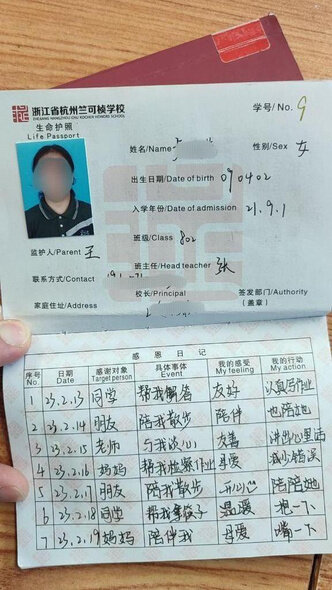 浙江省杭州竺可桢学校
生命护照
Life Passport
学号/No. 9
姓名/Name
性别/Sex 女
出生日期/Date of birth 090402
入学年份/Date of admission 21.9.1
班级/Class 802
监护人/Parent 王
班主任/Head teacher 张
联系方式/Contact
校长/Principal
签发部门/Authority
(盖章)
家庭住址/Address
感恩日记
序号 No. 日期 Date 感谢对象 Target person 具体事体 Event 我的感受 My feeling 我的行动 My action
1 23.2.13 同学 帮我解答 友好 认真写作业
2 23.2.14 朋友 陪我散步 陪伴 也陪她
3 23.2.15 老师 与我谈心 友善 讲出心里话
4 23.2.16 妈妈 帮我检察作业 母爱 减少错误
5 23.2.17 朋友 陪我散步 开心 陪陪她
6 23.2.18 同学 帮我拿筷子 温暖 抱一下
7 23.2.19 妈妈 陪伴我 母爱 嘴一下